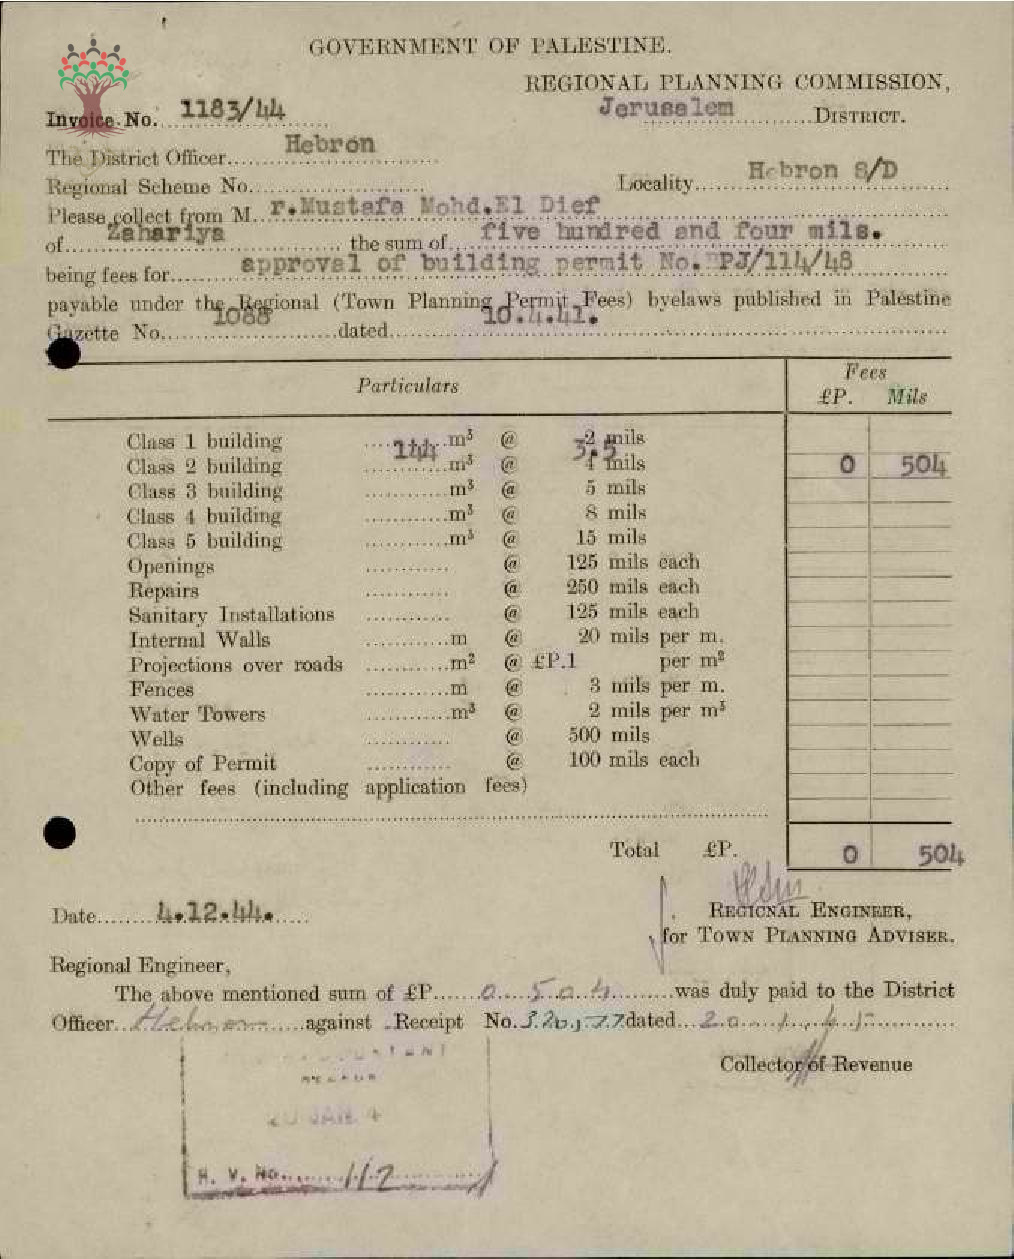 GOVERNMENT OF PALESTINE.
REGIONAL PLANNING COMMISSION,
Invoice No. 1183/44 Jerusalem DISTRICT.
The District Officer Hebron
Regional Scheme No. Locality Hebron S/D
Please collect from M r.Mustafa Mohd.El Dief
of Zahariya the sum of five hundred and four mils.
being fees for approval of building permit No. PJ/114/48
payable under the Regional (Town Planning Permit Fees) byelaws published in Palestine
Gazette No. 1088 dated 10.4.41.
Particulars Fees
£P. Mils
Class 1 building m³ @ 2 mils
Class 2 building 144 m³ @ 3.5 4 mils 0 504
Class 3 building m³ @ 5 mils
Class 4 building m³ @ 8 mils
Class 5 building m³ @ 15 mils
Openings @ 125 mils each
Repairs @ 250 mils each
Sanitary Installations @ 125 mils each
Internal Walls m @ 20 mils per m.
Projections over roads m² @ £P.1 per m²
Fences m @ 3 mils per m.
Water Towers m³ @ 2 mils per m³
Wells @ 500 mils
Copy of Permit @ 100 mils each
Other fees (including application fees)
Total £P. 0 504
Date 4.12.44.
REGIONAL ENGINEER,
for TOWN PLANNING ADVISER.
Regional Engineer,
The above mentioned sum of £P. 0.504 was duly paid to the District
Officer Hebron against Receipt No. dated 20
Collector of Revenue
20 JAN. 4
R. V. No. 112